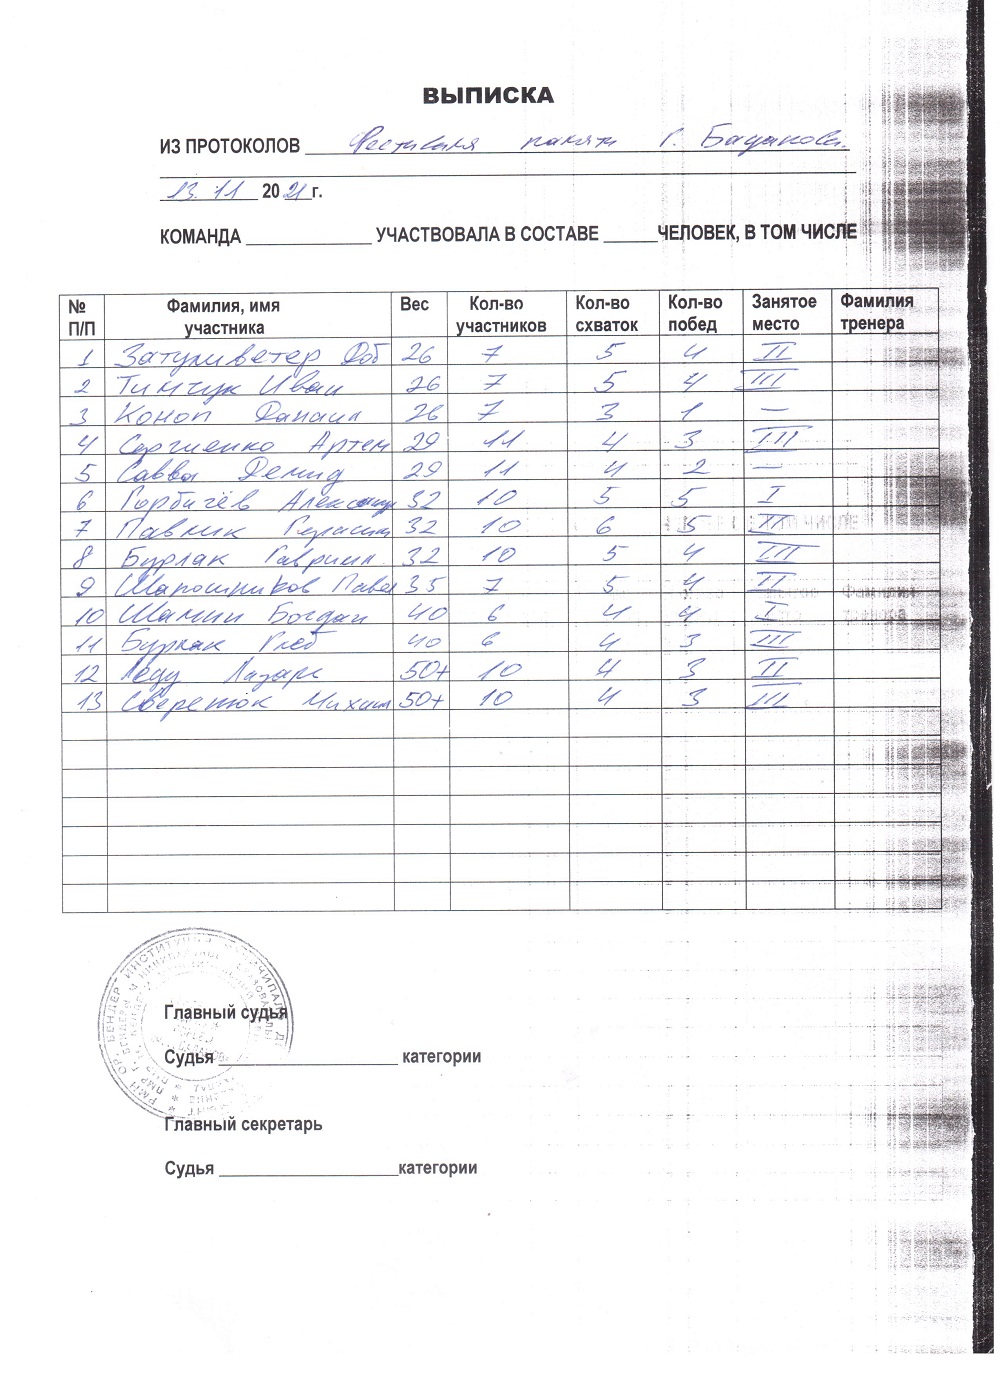 ВЫПИСКА
ИЗ ПРОТОКОЛОВ Фестиваля памяти Г. Баданова.
13. 11 20 21 г.
КОМАНДА ______________ УЧАСТВОВАЛА В СОСТАВЕ _____ ЧЕЛОВЕК, В ТОМ ЧИСЛЕ
№ П/П Фамилия, имя участника Вес Кол-во участников Кол-во схваток Кол-во побед Занятое место Фамилия тренера
1 Затуливетер 26 7 5 4 II
2 Тимчук Иван 26 7 5 4 III
3 Коноп Данаил 26 7 3 1 —
4 Сергиенко Артем 29 11 4 3 III
5 Савва Демид 29 11 4 2 —
6 Горбачёв Александр 32 10 5 5 I
7 Павлик Герасим 32 10 6 5 II
8 Бурлак Гавриил 32 10 5 4 III
9 Шапошников Павел 35 7 5 4 II
10 Шамии Богдан 40 6 4 4 I
11 Бурлак Глеб 40 6 4 3 III
12 Лазарь 50+ 10 4 3 II
13 Сверетюк Михаил 50+ 10 4 3 III
Главный судья
Судья ____________________ категории
Главный секретарь
Судья ____________________ категории